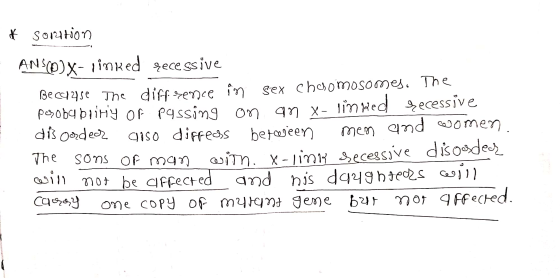 * Solution
ANS(D) X-linked recessive
Because The difference in sex chromosomes. The
probability of passing on an X-linked recessive
disorder also differs between men and women.
The sons of man with. X-link recessive disorder
will not be affected and his daughters will
carry one copy of mutant gene but not affected.